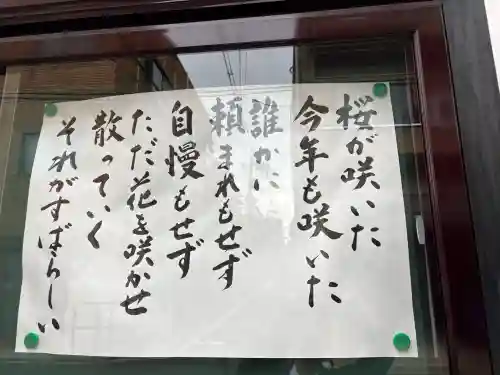 桜が咲いた
今年も咲いた
誰かに
頼まれもせず
自慢もせず
ただ花を咲かせ
散っていく
それがすばらしい